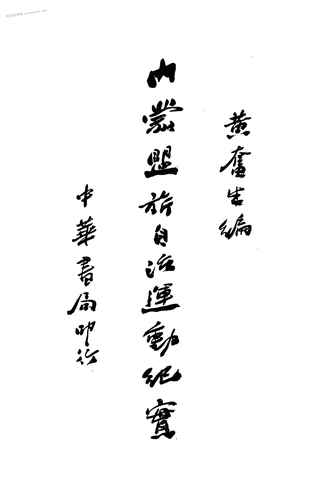 黄奮生編
內蒙盟旗自治運動紀實
中華書局印行